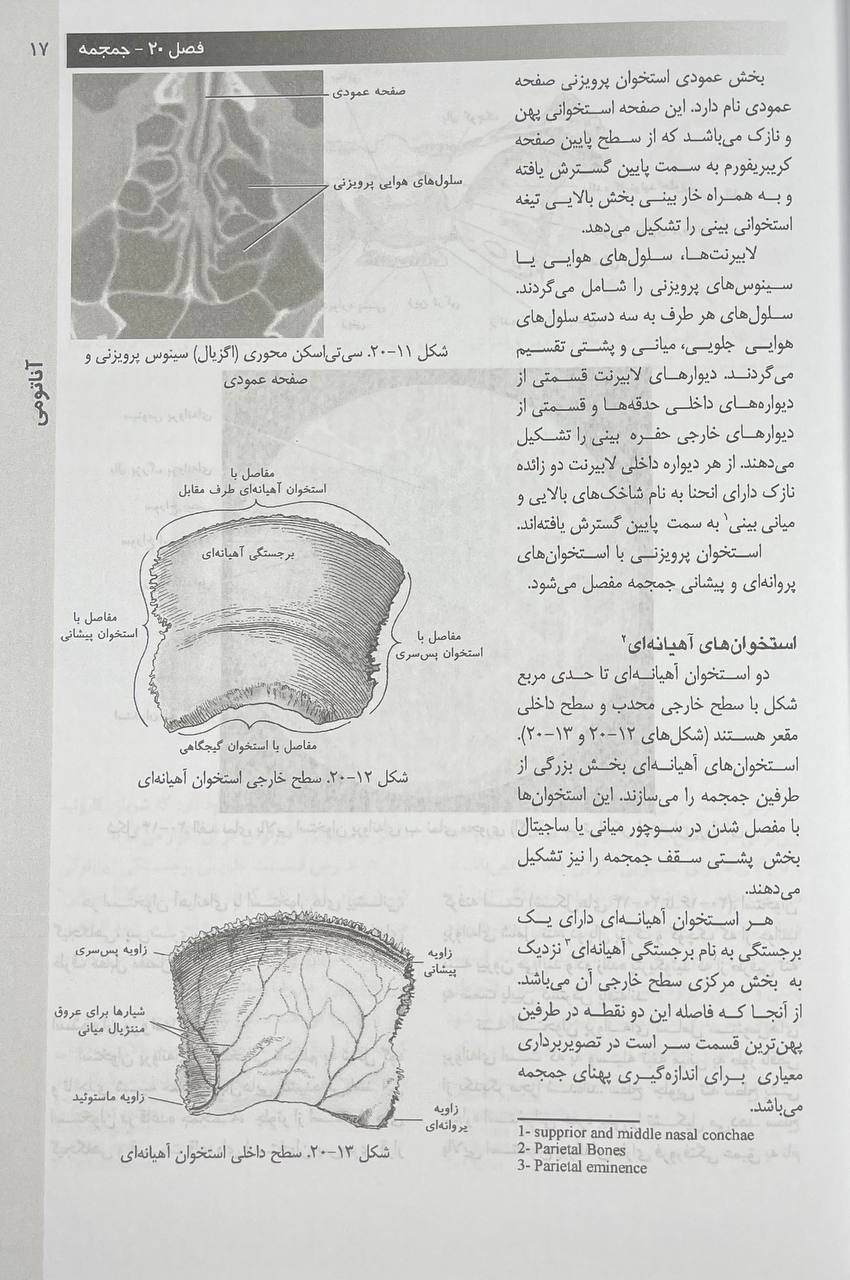 فصل ۲۰ - جمجمه
۱۷
آناتومی
بخش عمودی استخوان پرویزنی صفحه
عمودی نام دارد. این صفحه استخوانی پهن
و نازک می‌باشد که از سطح پایین صفحه
کریبریفورم به سمت پایین گسترش یافته
و به همراه خار بینی بخش بالایی تیغه
استخوانی بینی را تشکیل می‌دهد.
لابیرنت‌ها، سلول‌های هوایی یا
سینوس‌های پرویزنی را شامل می‌گردند.
سلول‌های هر طرف به سه دسته سلول‌های
هوایی جلویی، میانی و پشتی تقسیم
می‌گردند. دیوارهای لابیرنت قسمتی از
دیواره‌های داخلی حدقه‌ها و قسمتی از
دیوارهای خارجی حفره بینی را تشکیل
می‌دهند. از هر دیواره داخلی لابیرنت دو زائده
نازک دارای انحنا به نام شاخک‌های بالایی و
میانی بینی۱ به سمت پایین گسترش یافته‌اند.
استخوان پرویزنی با استخوان‌های
پروانه‌ای و پیشانی جمجمه مفصل می‌شود.
استخوان‌های آهیانه‌ای۲
دو استخوان آهیانه‌ای تا حدی مربع
شکل با سطح خارجی محدب و سطح داخلی
مقعر هستند (شکل‌های ۱۲-۲۰ و ۱۳-۲۰).
استخوان‌های آهیانه‌ای بخش بزرگی از
طرفین جمجمه را می‌سازند. این استخوان‌ها
با مفصل شدن در سوچور میانی یا ساجیتال
بخش پشتی سقف جمجمه را نیز تشکیل
می‌دهند.
هر استخوان آهیانه‌ای دارای یک
برجستگی به نام برجستگی آهیانه‌ای۳ نزدیک
به بخش مرکزی سطح خارجی آن می‌باشد.
از آنجا که فاصله این دو نقطه در طرفین
پهن‌ترین قسمت سر است در تصویربرداری
معیاری برای اندازه‌گیری پهنای جمجمه
می‌باشد.
1- supprior and middle nasal conchae
2- Parietal Bones
3- Parietal eminence
صفحه عمودی
سلول‌های هوایی پرویزنی
شکل ۱۱-۲۰. سی‌تی‌اسکن محوری (اگزیال) سینوس پرویزنی و
صفحه عمودی
مفاصل با
استخوان آهیانه‌ای طرف مقابل
برجستگی آهیانه‌ای
مفاصل با
استخوان پیشانی
مفاصل با
استخوان پس‌سری
مفاصل با استخوان گیجگاهی
شکل ۱۲-۲۰. سطح خارجی استخوان آهیانه‌ای
زاویه پس‌سری
زاویه
پیشانی
شیارها برای عروق
مننژیال میانی
زاویه ماستوئید
زاویه
پروانه‌ای
شکل ۱۳-۲۰. سطح داخلی استخوان آهیانه‌ای